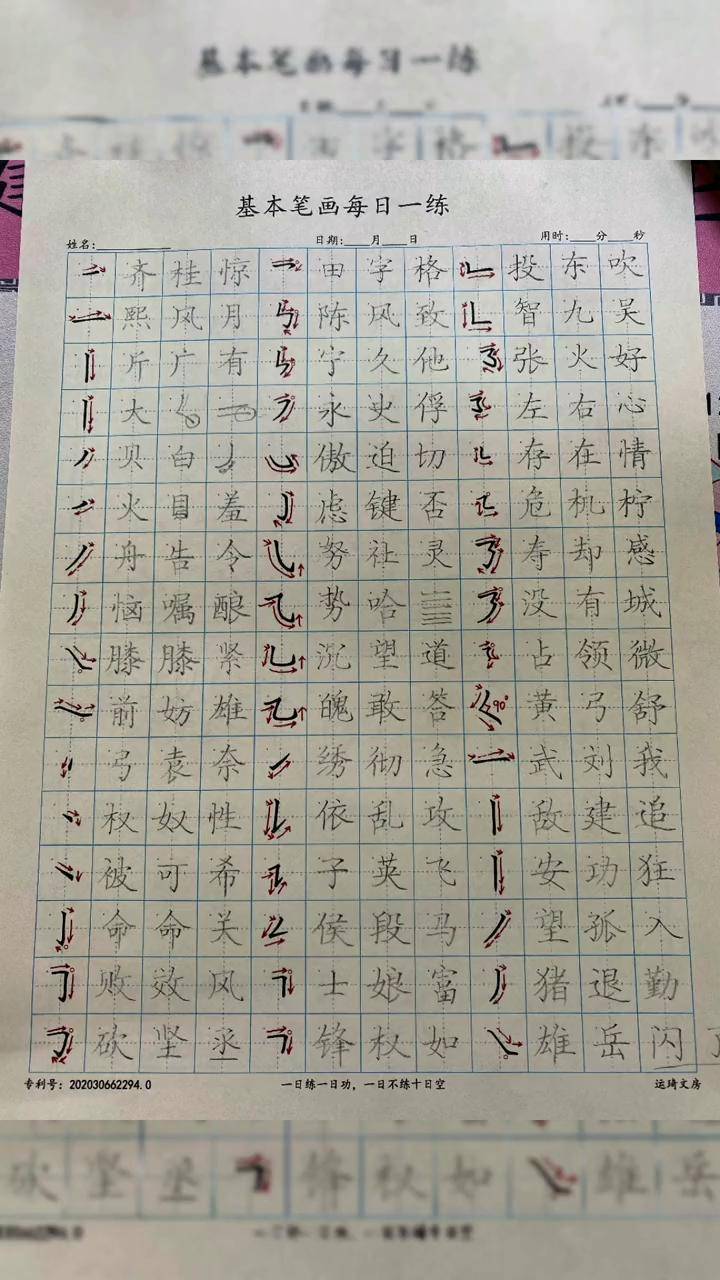 基本笔画每日一练
姓名: 日期: 月 日 用时: 分 秒
齐桂惊 田字格 投东吹
熙风月 陈风致 智九吴
斤广有 宁久他 张火好
大 永史俘 左右心
贝白 傲迫切 存在情
火目羞 虑键否 危机柠
舟告令 努祉灵 寿却感
恼嘱酿 势哈 没有城
膝膝紧 沉望道 占领微
前妨雄 魄敢答 90° 黄弓舒
弓袁奈 绣彻急 武刘我
权奴性 依乱攻 敌建追
被可希 子英飞 安功狂
命命关 侯段马 望孤入
败效风 士娘富 猪退勤
砍坚丞 锋权如 雄岳闪
专利号: 202030662294.0 一日练一日功，一日不练十日空 运琦文房